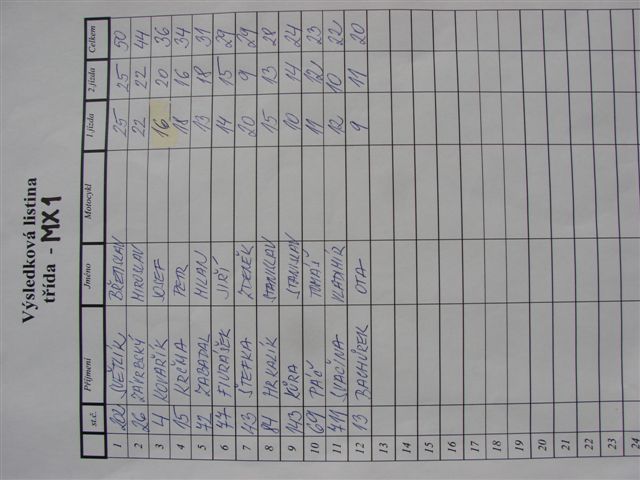 Výsledková listina
třída - MX1
st.č. Příjmení Jméno Motocykl 1.jízda 2.jízda Celkem
1 202 SVĚTLÍK BŘETISLAV 25 25 50
2 26 ZÁVRBSKÝ MIROSLAV 22 22 44
3 4 KOVAŘÍK JOSEF 16 20 36
4 15 KRCHA PETR 18 16 34
5 72 ZABADAL MILAN 13 18 31
6 77 FIURÁŠEK JIŘÍ 14 15 29
7 43 ŠTEFKA ZDENĚK 20 9 29
8 84 HRKALÍK STANISLAV 15 13 28
9 143 KŮRA STANISLAV 10 14 24
10 69 PÁČ TOMÁŠ 11 12 23
11 711 SVAČINA VLADIMÍR 12 10 22
12 13 BACHŮREK OTA 9 11 20
13
14
15
16
17
18
19
20
21
22
23
24